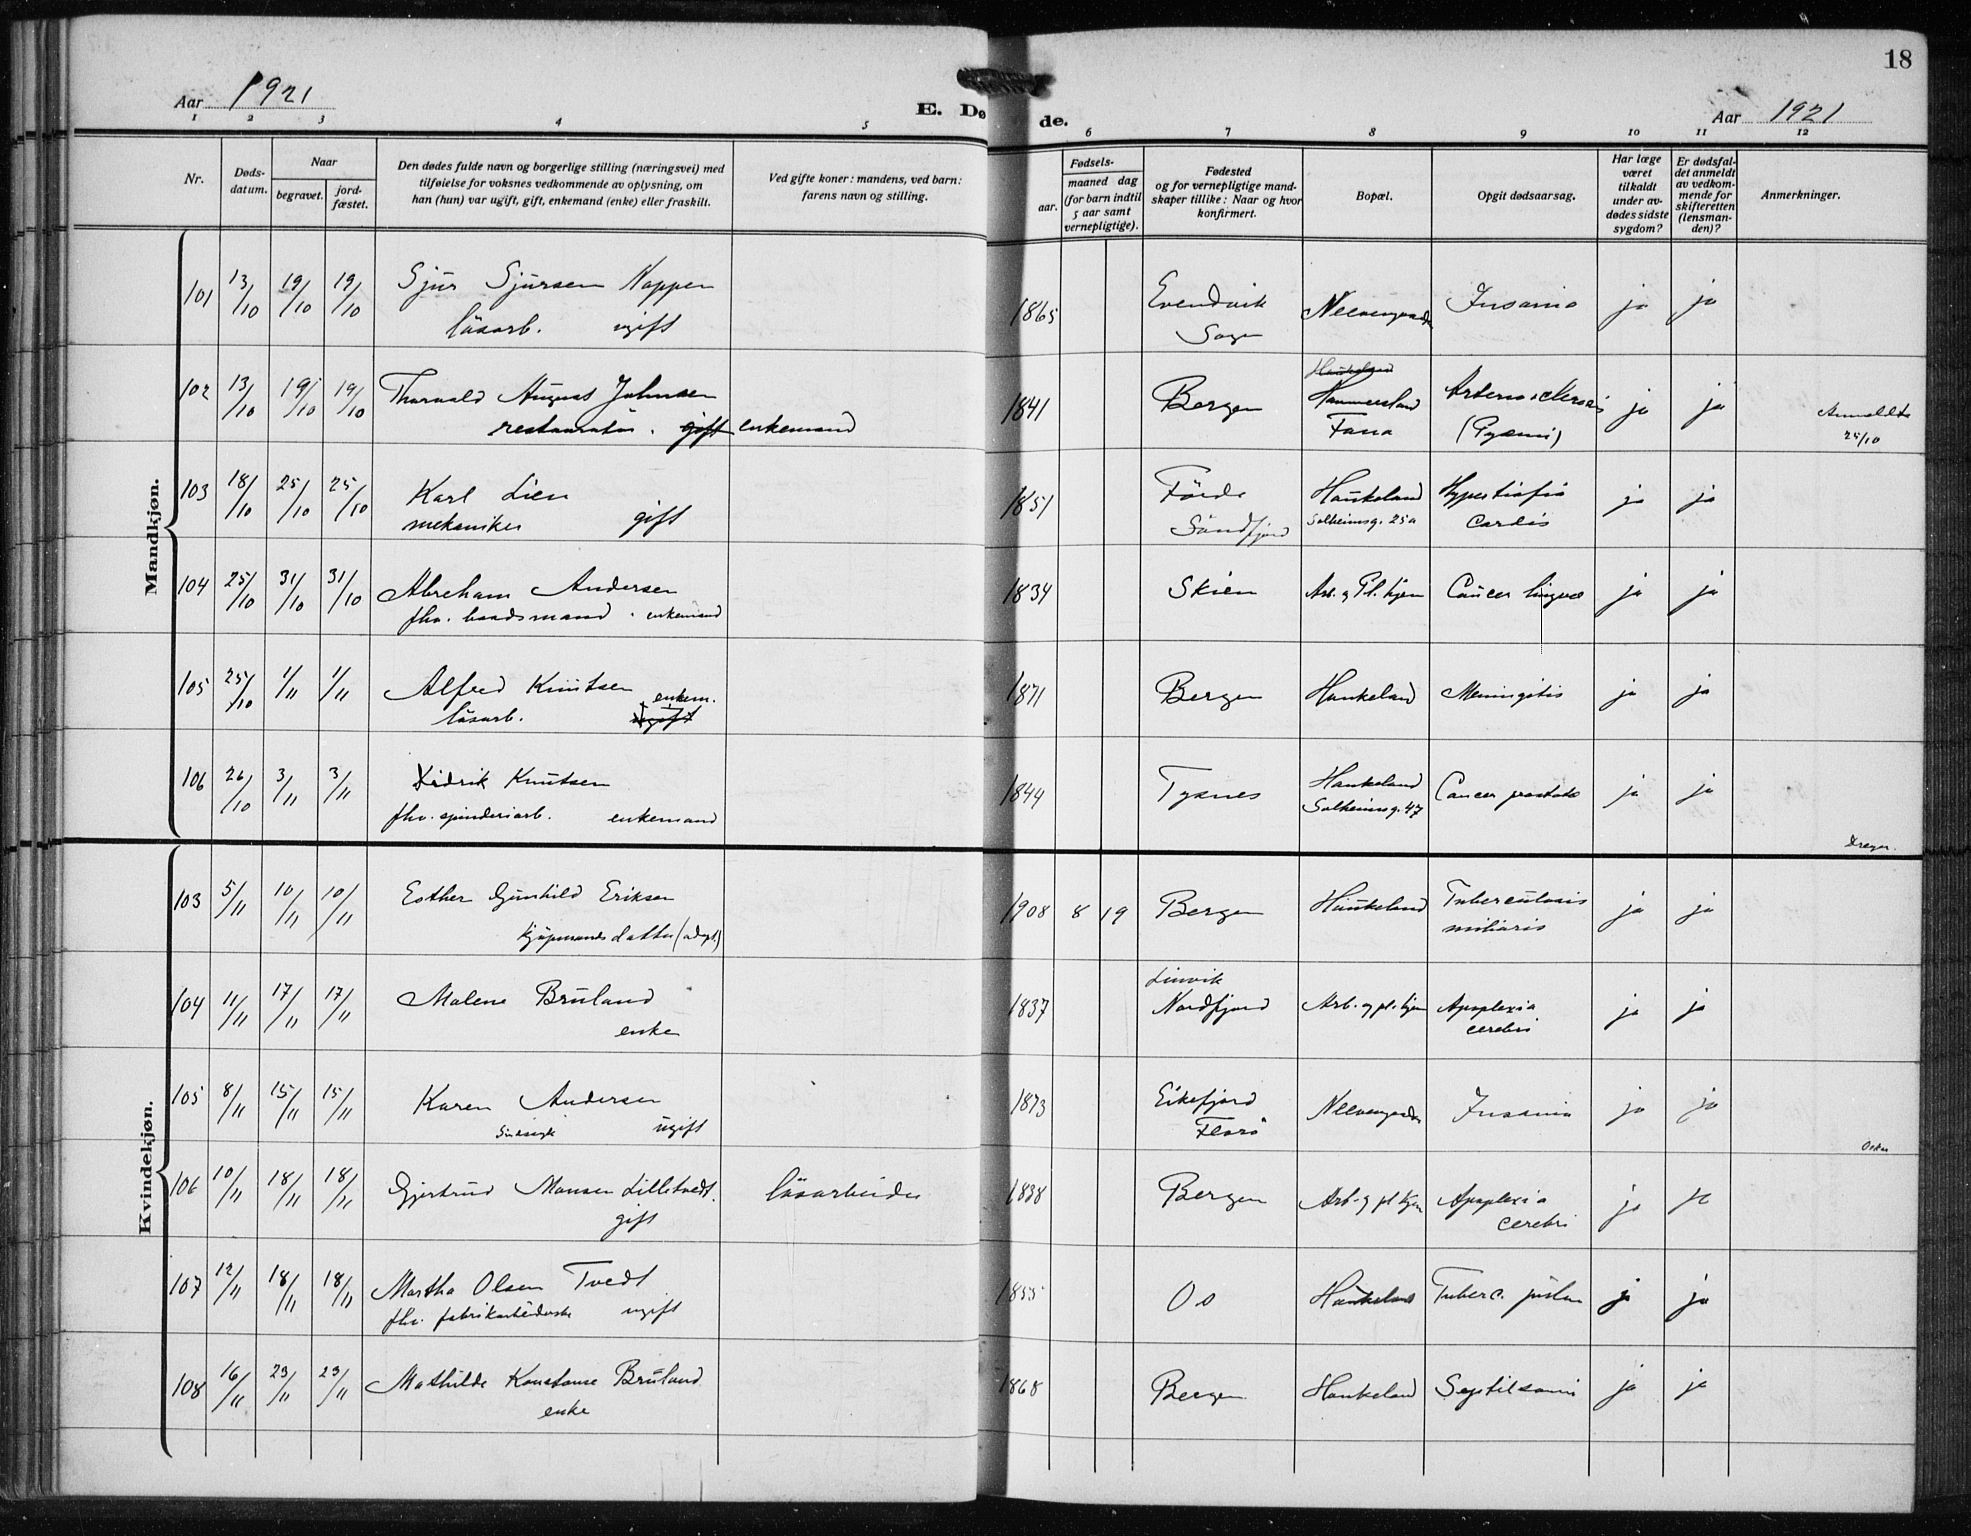 18
Aar 1921
E. Dø
de.
Aar 1921
1 2 3 4 5 6 7 8 9 10 11 12
Nr.
Døds-
datum.
Naar
begravet.
jord-
fæstet.
Den dødes fulde navn og borgerlige stilling (næringsvei) med
tilføielse for voksnes vedkommende av oplysning, om
han (hun) var ugift, gift, enkemand (enke) eller fraskilt.
Ved gifte koner: mandens, ved barn:
farens navn og stilling.
aar.
Fødsels-
maaned dag
(for barn indtil
5 aar samt
vernepligtige).
Fødested
og for vernepligtige mand-
skaper tillike: Naar og hvor
konfirmert.
Bopæl.
Opgit dødsaarsag.
Har læge
været
tilkaldt
under av-
dødes sidste
sygdom?
Er dødsfal-
det anmeldt
av vedkom-
mende for
skifteretten
(lensman-
den)?
Anmerkninger.
Mandkjøn.
101 13/10 19/10 19/10 Sjur Sjursen Noppen 1865 Evendvik Neevengaarden Insania ja ja
løsarb. ugift Sogn
102 13/10 19/10 19/10 Thorvald August Johnsen 1841 Bergen Haukeland Hammersland ja ja Anmeldt
restauratør. gift enkemand Fana (Pyæmi) 25/10
103 18/10 25/10 25/10 Karl Lien 1851 Førde Haukeland Hypertrofia ja ja
mekaniker gift Søndfjord Solheimsg. 25a cordis
104 25/10 31/10 31/10 Abraham Andersen 1834 Skien Arb. og Pl. hjem Cancer lingvæ ja ja
fhv. baadsmand. enkemand
105 25/10 1/11 1/11 Alfred Knutsen enkem. 1871 Bergen Haukeland Meningitis ja ja
løsarb. ugift
106 26/10 3/11 3/11 Didrik Knutsen 1844 Tysnes Haukeland Cancer prostata ja ja
fhv. spinderiarb. enkemand Solheimsg. 47
Kvindekjøn.
103 5/11 10/11 10/11 Esther Gunhild Eriksen 1908 8 19 Bergen Haukeland Tuberculosis ja ja
kjøpmands datter (adopt.) miliaris
104 11/11 17/11 17/11 Malene Bruland 1837 Nordfjord Arb. og pl. hjem Apoplexia ja ja
enke cerebri
105 8/11 15/11 15/11 Karen Andersen 1873 Eikefjord Neevengaarden Insania ja ja
Sindssyk ugift Florø
106 10/11 18/11 18/11 Gjertrud Monsen Lilletvedt. løsarbeider 1838 Bergen Arb. og pl. hjem Apoplexia ja ja
gift cerebri
107 12/11 18/11 18/11 Martha Olsen Tvedt 1855 Os Haukeland Tuberc. pulm ja ja
fhv. fabrikarbeiderske ugift
108 16/11 23/11 23/11 Mathilde Konstanse Bruland 1868 Bergen Haukeland ja ja
enke